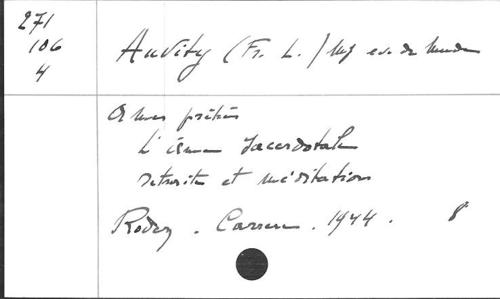 271
106
4
Auvity (Fr. L.) Mgr ev. de Mende
Ames prêtres
L'âme sacerdotale
retraite et méditation
Rodez. Carrere. 1944. 8°